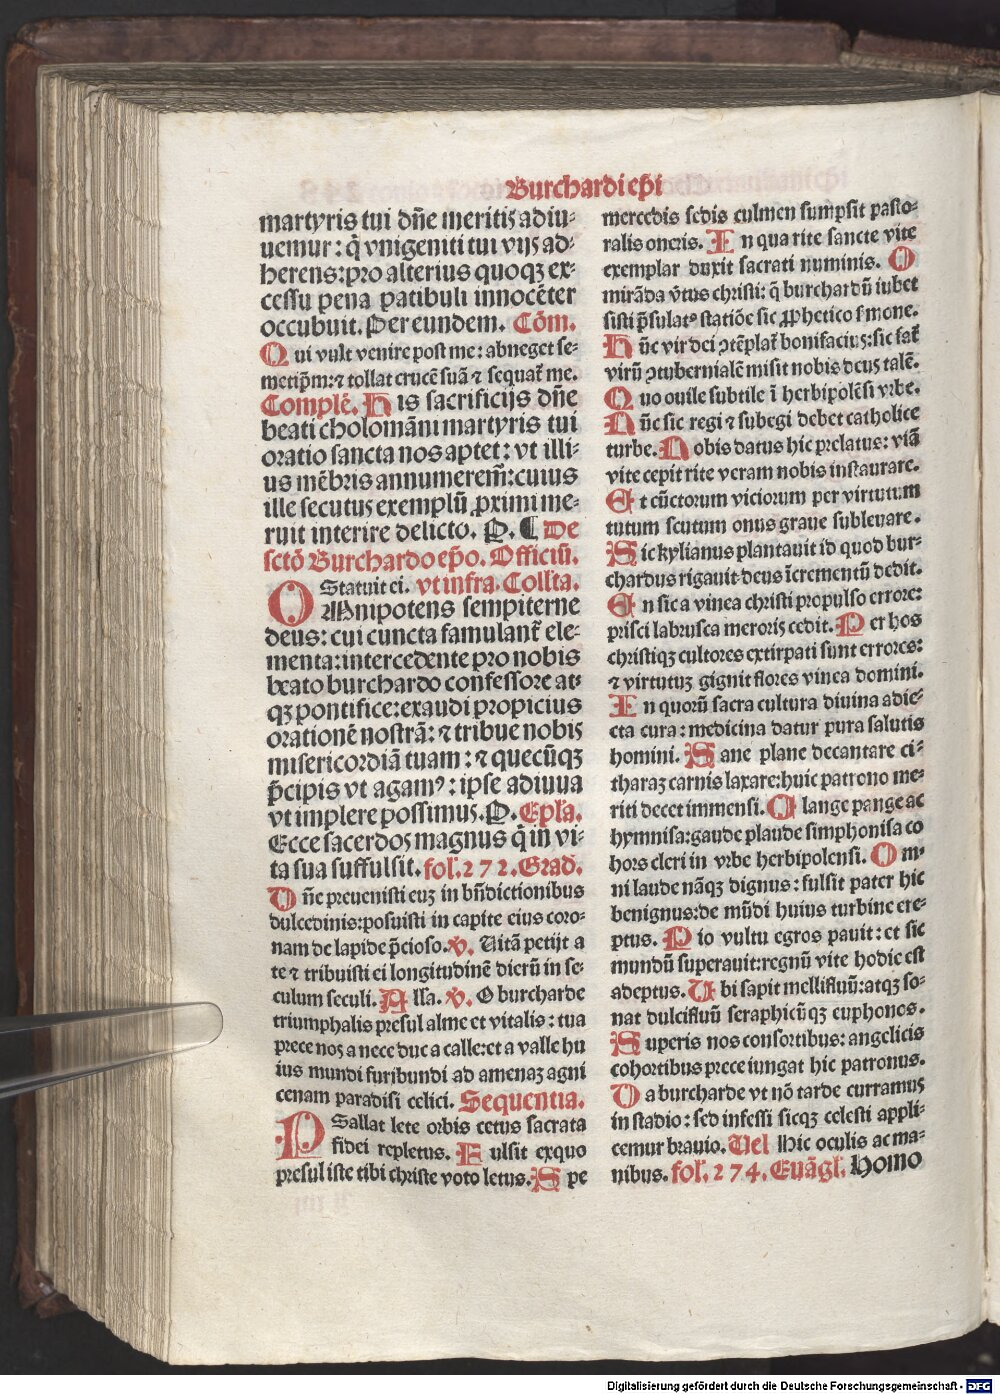 Burchardi ep̄i
martyris tui dn̄e meritis adiu⸗
uemur: q̄ vnigeniti tui vijs ad⸗
herens: pro alterius quoqꝫ ex⸗
cessu pena patibuli innocēter
occubuit. Per eundem. Cōm.
Qui vult venire post me: abneget se⸗
metip̄m: ⁊ tollat crucē suā ⁊ sequat᷑ me.
Complē. His sacrificijs dn̄e
beati cholomāni martyris tui
oratio sancta nos aptet: vt illi⸗
us mēbris annumerem̄: cuius
ille secutus exemplū ꝓximi me⸗
ruit interire delicto. P. ¶ De
sctō Burchardo ep̄o. Officiū.
Statuit ei. vt infra. Collta.
OMnipotens sempiterne
deus: cui cuncta famulant᷑ ele⸗
menta: intercedente pro nobis
beato burchardo confessore at⸗
qꝫ pontifice: exaudi propicius
orationē nostrā: ⁊ tribue nobis
misericordiā tuam: ⁊ quecūqꝫ
p̄cipis vt agamꝰ: ipse adiuua
vt implere possimus. P. Epla.
Ecce sacerdos magnus q̄ in vi⸗
ta sua suffulsit. fol. 272. Grad.
Dn̄e preuenisti euꝫ in bn̄dictionibus
dulcedinis: posuisti in capite eius coro⸗
nam de lapide p̄cioso. ℣. Uitā petijt a
te ⁊ tribuisti ei longitudinē dierū in se⸗
culum seculi. Alla. ℣. O burcharde
triumphalis presul alme et vitalis: tua
prece nos a nece duc a calle: et a valle hu
ius mundi furibundi ad amenaꝫ agni
cenam paradisi celici. Sequentia.
PSallat lete orbis cetus sacrata
fidei repletus. Fulsit exquo
presul iste tibi christe voto letus. Spe
mercedis sedis culmen sumpsit pasto⸗
ralis oneris. In qua rite sancte vite
exemplar duxit sacrati numinis. O
mirāda v̄tus christi: q̄ burchardū iubet
sisti p̄sulatꝰ statiōe sic ꝓphetico s̄mone.
Hūc vir dei ꝯtēplat᷑ bonifacius: sic fat᷑
virū ꝯtubernialē misit nobis deus talē.
Quo ouile subtile ī herbipolēsi vrbe.
Hūc sic regi ⁊ subegi debet catholice
turbe. Nobis datus hic prelatus: viā
vite cepit rite veram nobis instaurare.
Et cūctorum viciorum per virtutum
tutum scutum onus graue subleuare.
Sic kylianus plantauit id quod bur⸗
chardus rigauit deus īcrementū dedit.
En sic a vinea christi propulso errore:
prisci labrusca meroris cedit. Per hos
christiqꝫ cultores extirpati sunt errores:
⁊ virtutuꝫ gignit flores vinea domini.
In quorū sacra cultura diuina adie⸗
cta cura: medicina datur pura salutis
homini. Sane plane decantare ci⸗
tharaꝫ carnis laxare: huic patrono me⸗
riti decet immensi. Clange pange ac
hymnisa: gaude plaude simphonisa co
hors cleri in vrbe herbipolensi. Om⸗
ni laude nāqꝫ dignus: fulsit pater hic
benignus: de mūdi huius turbine ere⸗
ptus. Pio vultu egros pauit: et sic
mundū superauit: regnū vite hodie est
adeptus. Ubi sapit mellifluū: atqꝫ so⸗
nat dulcifluū seraphicūqꝫ euphonos.
Superis nos consortibus: angelicis
cohortibus prece iungat hic patronus.
Da burcharde vt nō tarde curramus
in stadio: sed infessi sicqꝫ celesti appli⸗
cemur brauio. Uel Hic oculis ac ma⸗
nibus. fol. 274. Euāgl. Homo
Digitalisierung gefördert durch die Deutsche Forschungsgemeinschaft - DFG